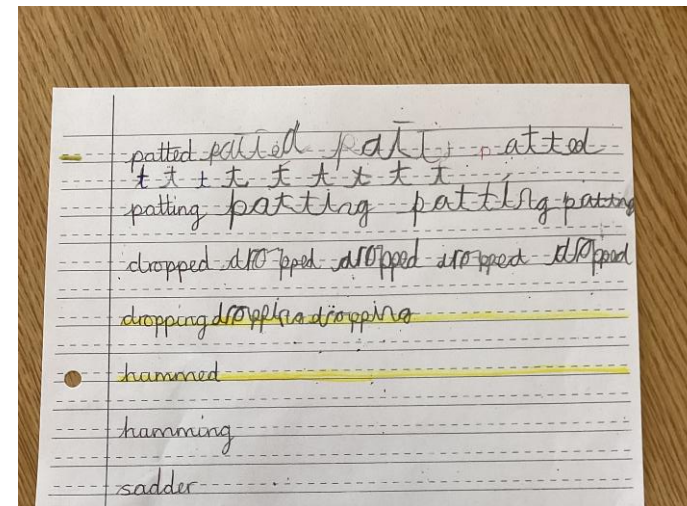 patted patted patt patted
t t t t t t t t t
patting patting patting patting
dropped dropped dropped dropped dropped
dropping dropping dropping
hammed
hamming
sadder